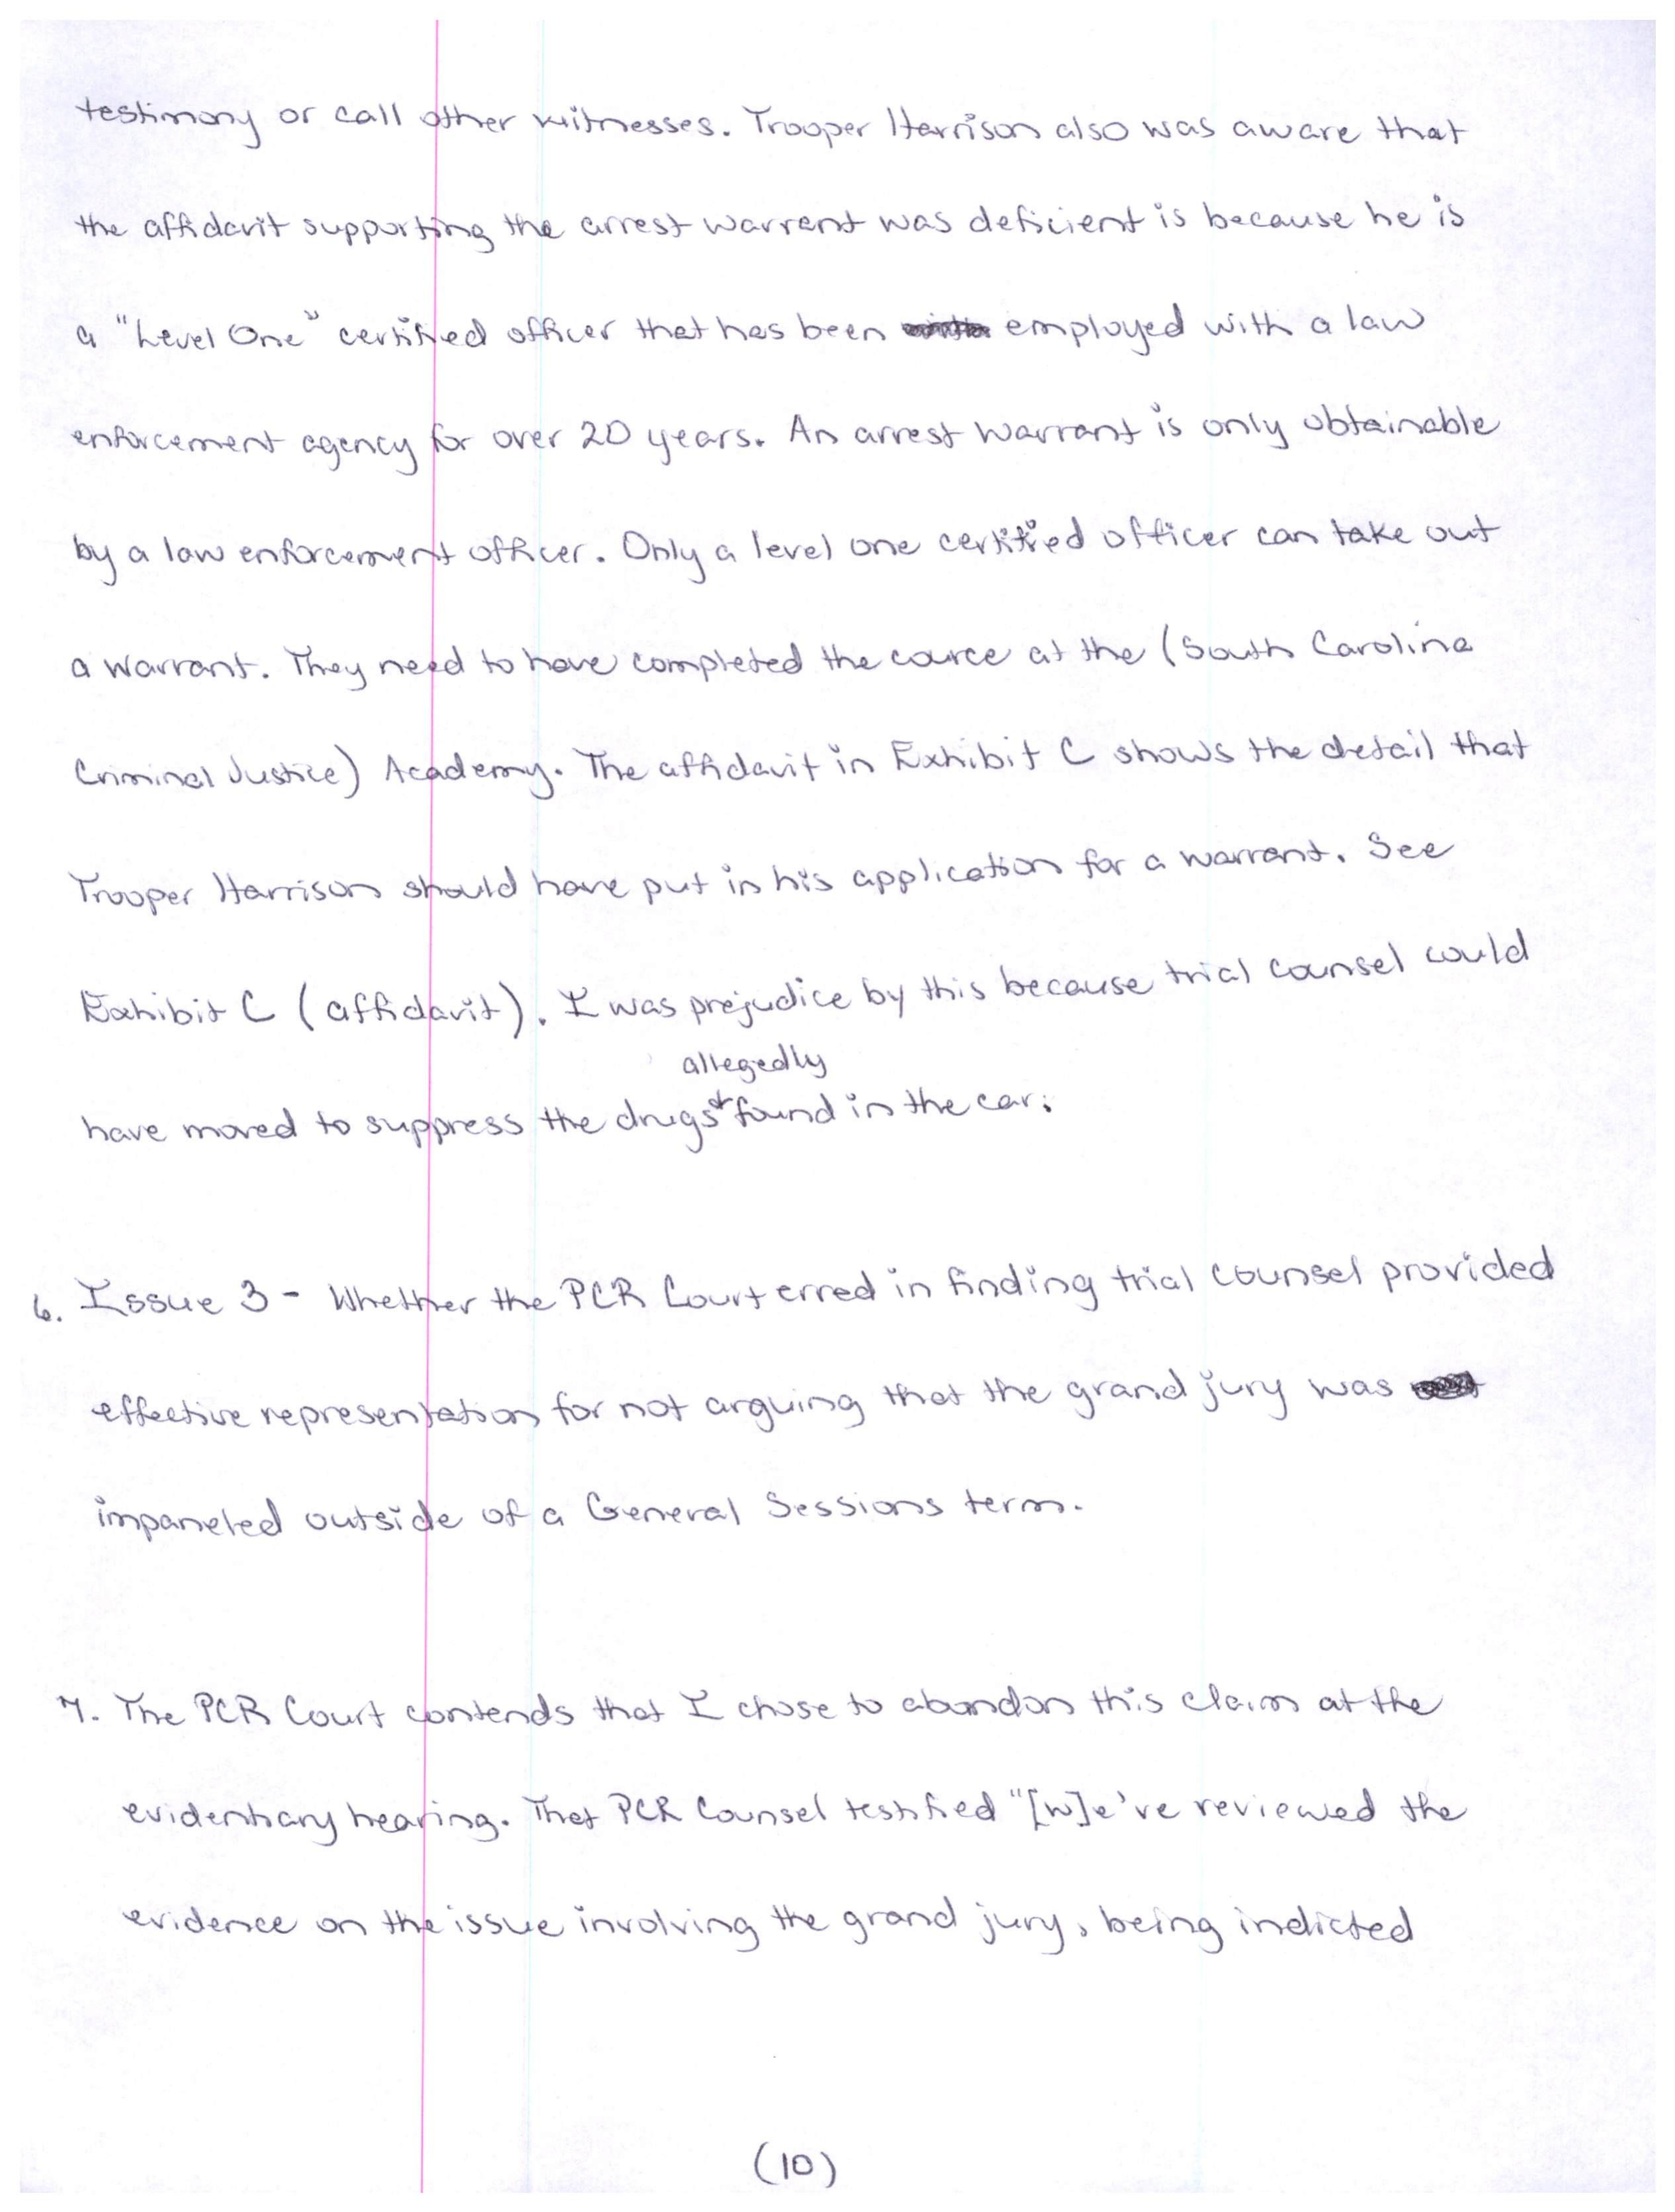 testimony or call other witnesses. Trooper Harrison also was aware that
the affidavit supporting the arrest warrent was deficient is because he is
a "Level One" certified officer that has been employed with a law
enforcement agency for over 20 years. An arrest warrant is only obtainable
by a law enforcement officer. Only a level one certified officer can take out
a warrant. They need to have completed the cource at the (South Carolina
Criminal Justice) Academy. The affidavit in Exhibit C shows the detail that
Trooper Harrison should have put in his application for a warrent. See
Exhibit C (affidavit). I was prejudice by this because trial counsel could
allegedly
have moved to suppress the drugs found in the car.
6. Issue 3 - Whether the PCR Court erred in finding trial counsel provided
effective representation for not arguing that the grand jury was
impaneled outside of a General Sessions term.
7. The PCR Court contends that I chose to abandon this claim at the
evidentiary hearing. That PCR Counsel testified "[w]e've reviewed the
evidence on the issue involving the grand jury, being indicted
(10)